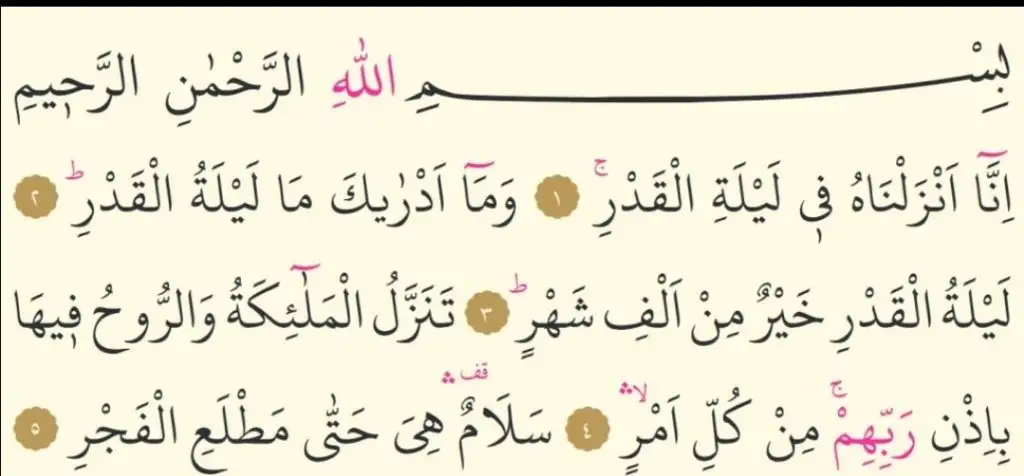 بِسْمِ اللهِ الرَّحْمٰنِ الرَّح۪يمِ
اِنَّٓا اَنْزَلْنَاهُ ف۪ي لَيْلَةِ الْقَدْرِۚ ﴿١﴾ وَمَٓا اَدْرٰيكَ مَا لَيْلَةُ الْقَدْرِۜ ﴿٢﴾
لَيْلَةُ الْقَدْرِ خَيْرٌ مِنْ اَلْفِ شَهْرٍۜ ﴿٣﴾ تَنَزَّلُ الْمَلٰٓئِكَةُ وَالرُّوحُ ف۪يهَا
بِاِذْنِ رَبِّهِمْۚ مِنْ كُلِّ اَمْرٍۙۛ ﴿٤﴾ سَلَامٌ۠ۛ هِيَ حَتّٰى مَطْلَعِ الْفَجْرِ ﴿٥﴾